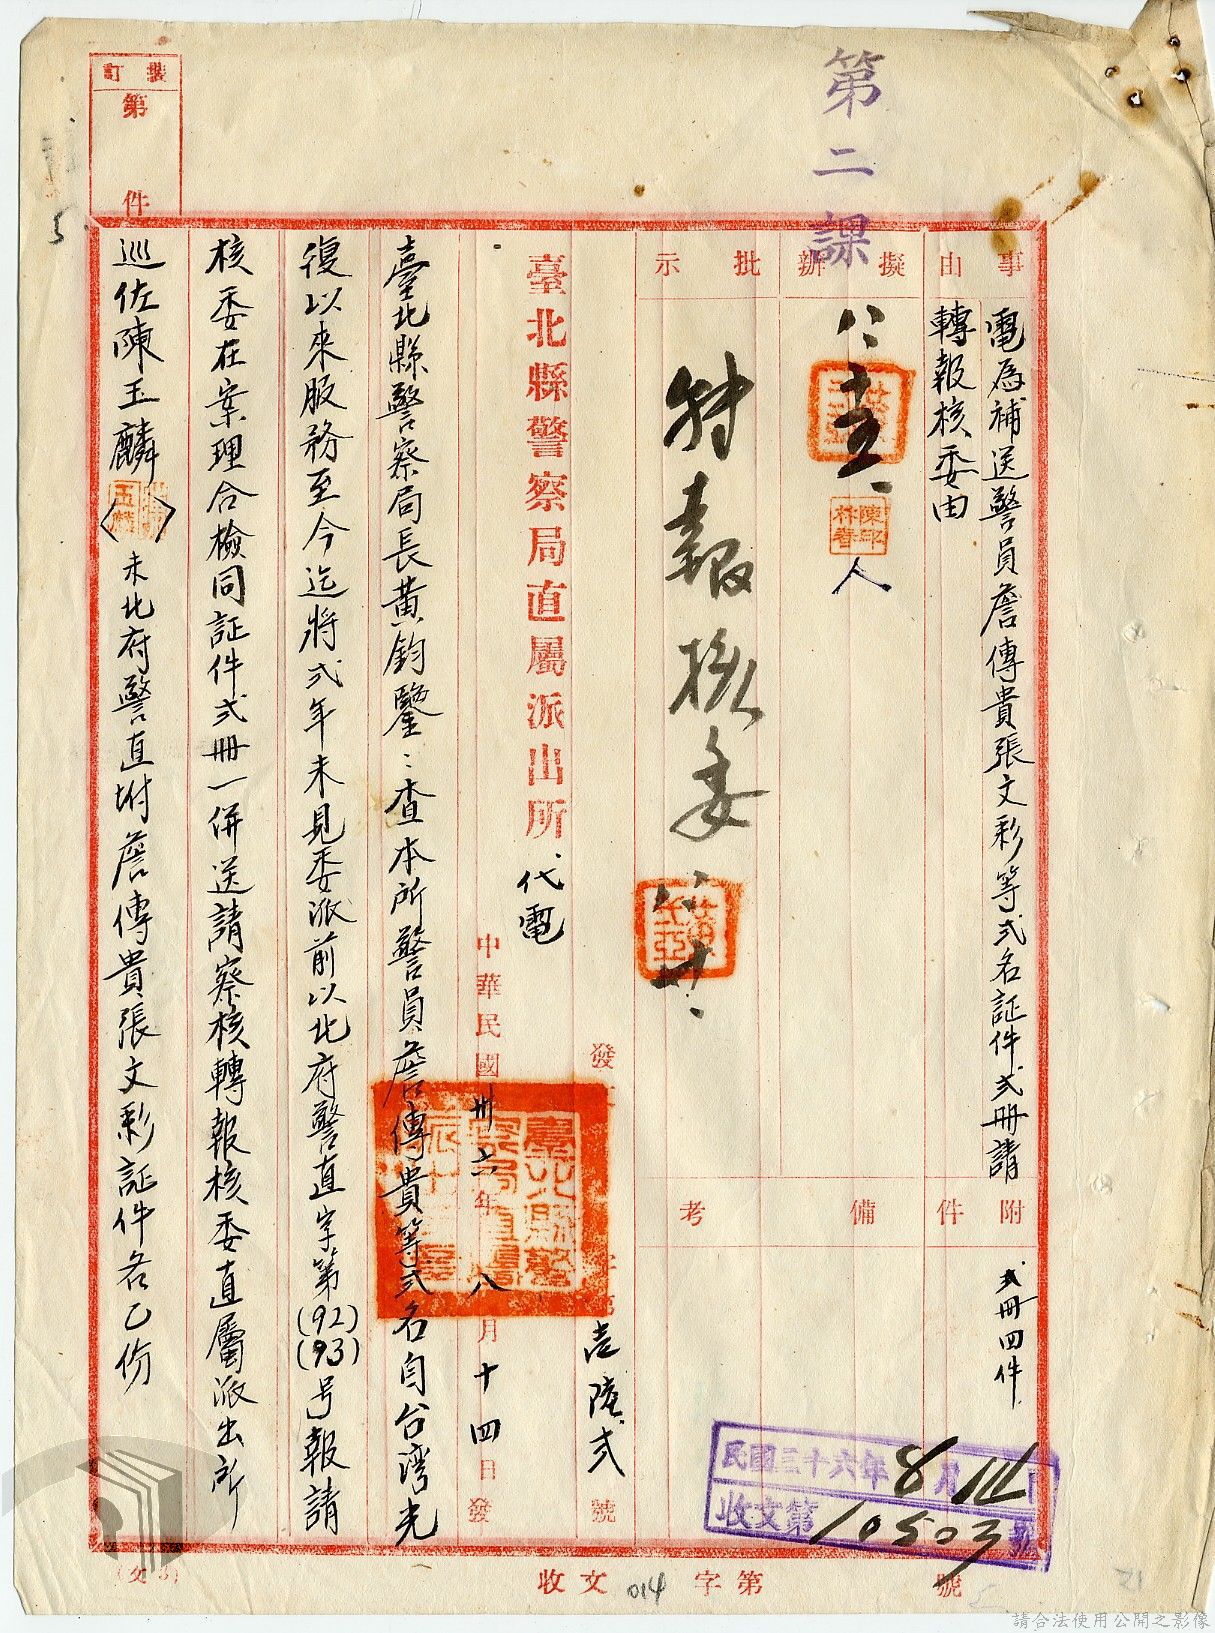 第二課
裝訂
第
件
事由
電為補送警員詹傳貴張文彩等弍名証件弍冊請
轉報核委由
附件
弍冊四件
擬辦
陳林春印
人
批示
轉報核委
備考
民國三十六年8月14日
收文第10503號
發文
字第
壱陸弍
號
臺北縣警察局直屬派出所代電
中華民國卅六年八月十四日發
臺北縣警察局長黃鈞鑒:查本所警員詹傳貴等弍名自台灣光
復以來服務至今迄將弍年未見委派前以北府警直字第(92)(93)号報請
核委在案理合檢同証件弍冊一併送請察核轉報核委直屬派出所
巡佐陳玉麟〈〉未北府警直坿詹傳貴張文彩証件各乙份
收文
字第
號
014
21
5
請合法使用公開之影像